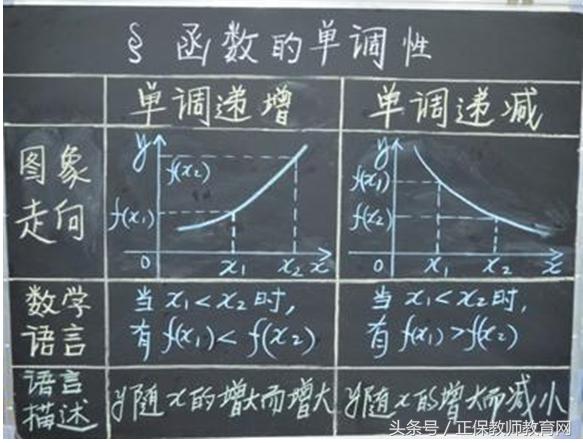 § 函数的单调性
单调递增
单调递减
图象
走向
y
f(x₂)
f(x₁)
0
x₁
x₂
x
y
f(x₁)
f(x₂)
0
x₁
x₂
x
数学
语言
当 x₁<x₂时,
有 f(x₁)<f(x₂)
当 x₁<x₂时,
有 f(x₁)>f(x₂)
语言
描述
y随x的增大而增大
y随x的增大而减小
头条号／正保教师教育网